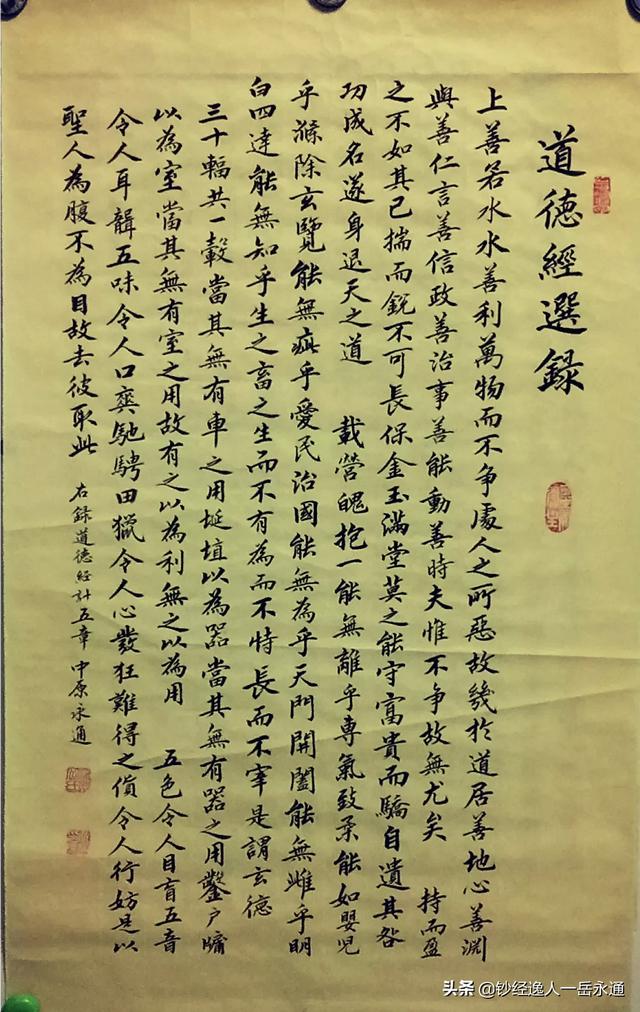 道德經選錄
上善若水水善利萬物而不争處人之所惡故幾於道居善地心善淵
與善仁言善信政善治事善能動善時夫惟不争故無尤矣 持而盈
之不如其已揣而銳不可長保金玉滿堂莫之能守富貴而驕自遺其咎
功成名遂身退天之道 載營魄抱一能無離乎專氣致柔能如嬰兒
乎滌除玄覽能無疵乎愛民治國能無為乎天門開闔能無雌乎明
白四達能無知乎生之畜之生而不有為而不恃長而不宰是謂玄德
三十輻共一轂當其無有車之用埏埴以為器當其無有器之用鑿戶牖
以為室當其無有室之用故有之以為利無之以為用 五色令人目盲五音
令人耳聾五味令人口爽馳騁田獵令人心發狂難得之貨令人行妨是以
聖人為腹不為目故去彼取此 右錄道德經計五章 中原永通
头条 @钞经逸人一岳永通